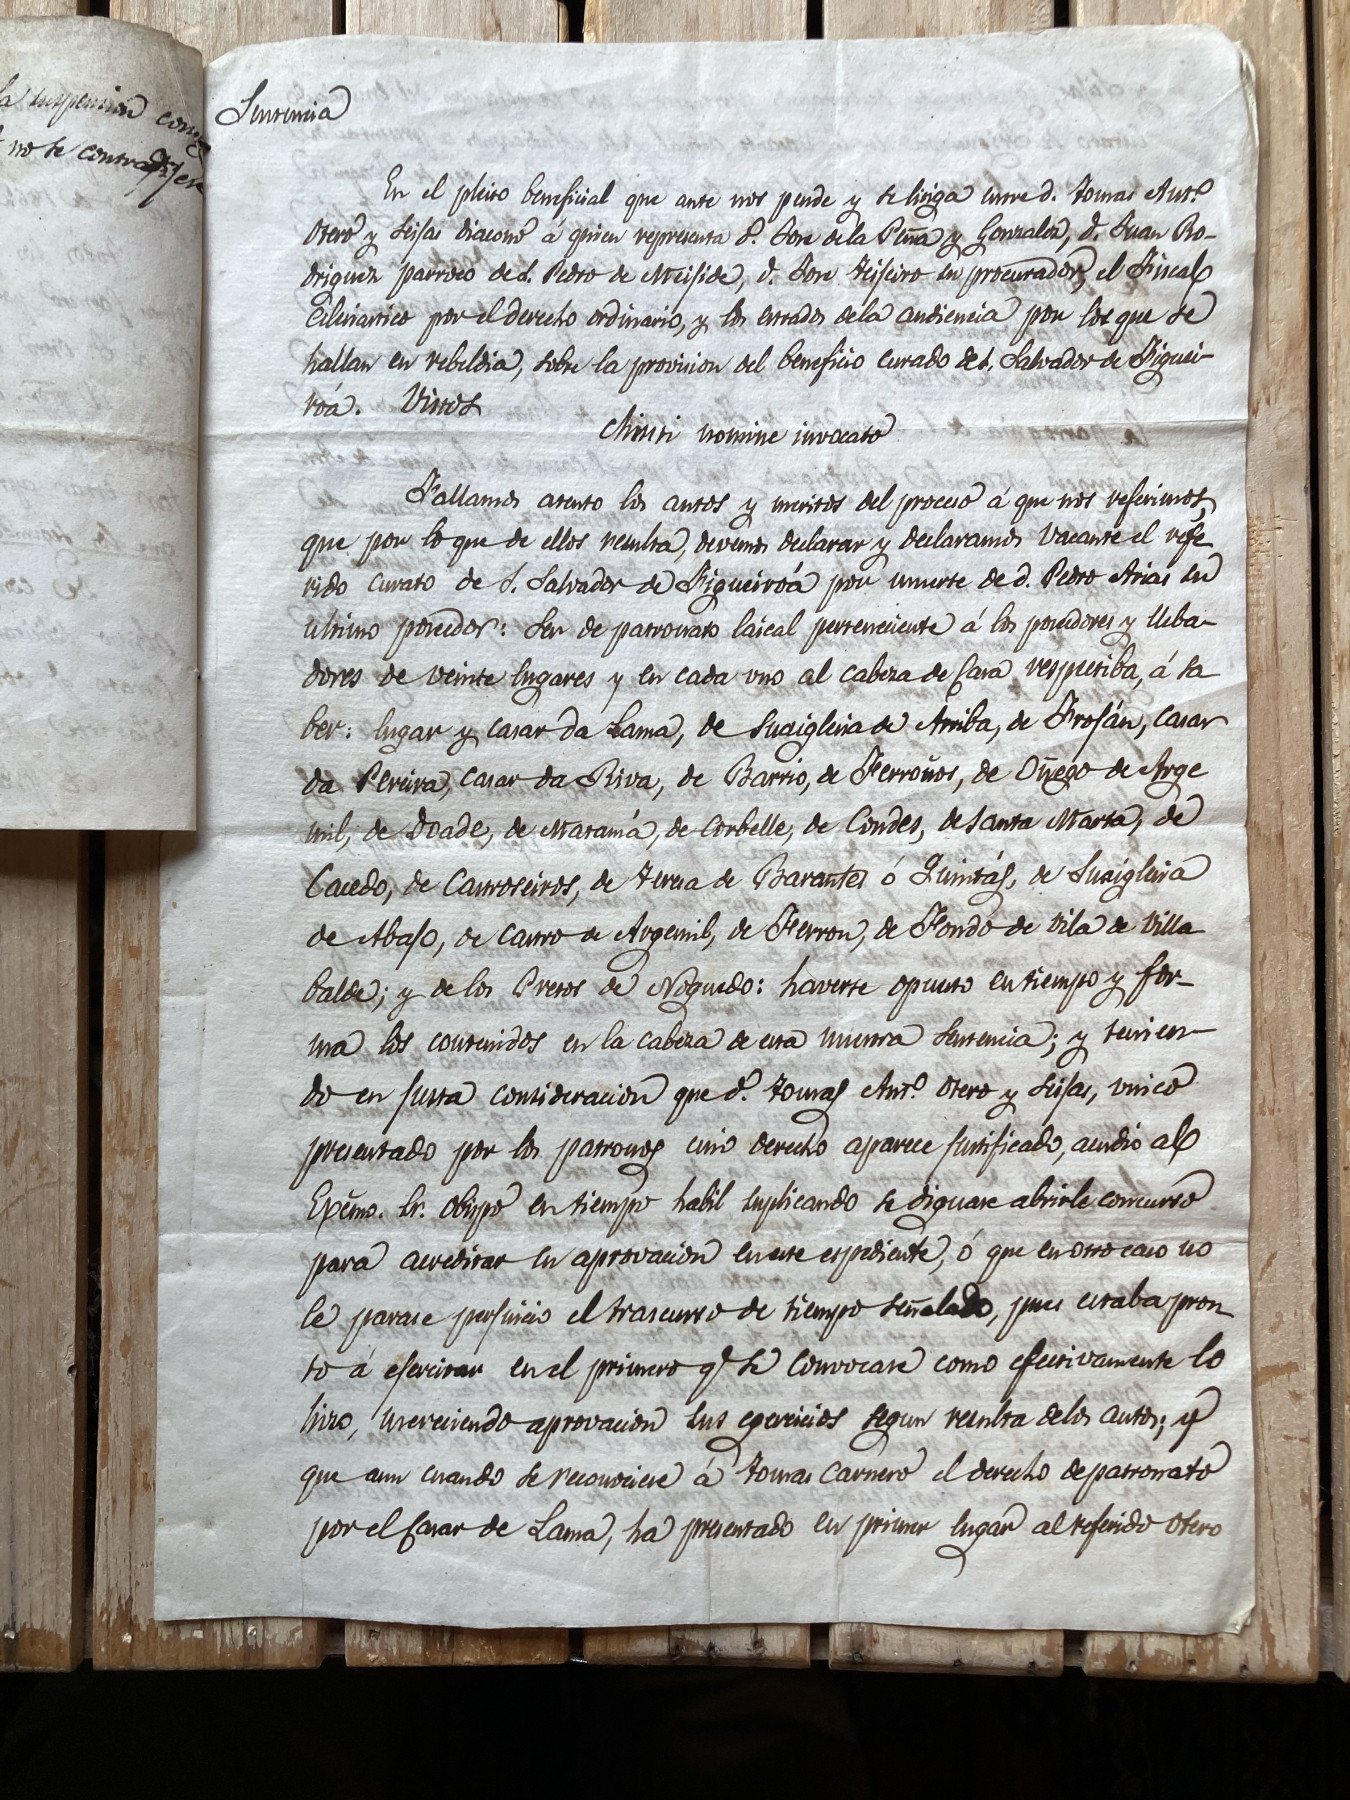 la suspension con
no se contra
Sentencia
En el pleito beneficial que ante nos pende y se litiga entre d. Tomas Ant.º
Otero y Seijas diacono á quien representa d. Jose de la Peña y Gonzalez, d. Juan Ro-
driguez parroco de S. Pedro de Meijide, d. Jose Teijeiro su procurador, el Fiscal
Eclesiastico por el derecho ordinario, y los estrados dela audiencia por los que se
hallan en rebeldia, sobre la provision del beneficio curado de S. Salvador de Figuei-
roá. Vistos
Christi nomine invocato
Fallamos atento los autos y meritos del proceso á que nos referimos,
que por lo que de ellos resulta, devemos declarar y declaramos vacante el refe
rido curato de S. Salvador de Figueiroá por muerte de d. Pedro Arias su
ultimo poseedor: Ser de patronato laical perteneciente á los poseedores y lleba-
dores de veinte lugares y en cada uno al cabeza de Casa respectiba, á sa
ber: lugar y casar da Lama, de Suaiglesia de Arriba, de Frojàn, casar
da Pereira, casar da Riva, de Barrio, de Ferroños, de Orrego de Arge
mil, de Doade, de Matamá, de Corbelle, de Condes, de Santa Marta, de
Cacedo, de Castroseiros, de Tercia de Barantes ó Quintás, de Suáiglesia
de Abajo, de Castro de Argemil, de Ferron, de Fondo de Vila de Villa
balde; y de los Pretos de Noguedo: haverse opuesto en tiempo y for-
ma los contenidos en la cabeza de esta nuestra Sentencia; y tenien-
do en justa consideracion que d. Tomas Ant.º Otero y Seijas, unico
presentado por los patronos cuio derecho aparece justificado, acudió al
Exc̃mo. Sr. Obispo en tiempo habil suplicando se dignase abrirle concurso
para acreditar su aprovacion en este espediente, ó que en otro caso no
le parase perjuicio el trascurso de tiempo señalado, pues estaba pron
to á ejercitar en el primero q.e se convocase como efectivamente lo
hizo, mereciendo aprovacion sus egercicios segun resulta delos autos; y
que aun cuando se reconociese á Tomas Carnero el derecho de patronato
por el Casar de Lama, ha presentado en primer lugar al referido Otero